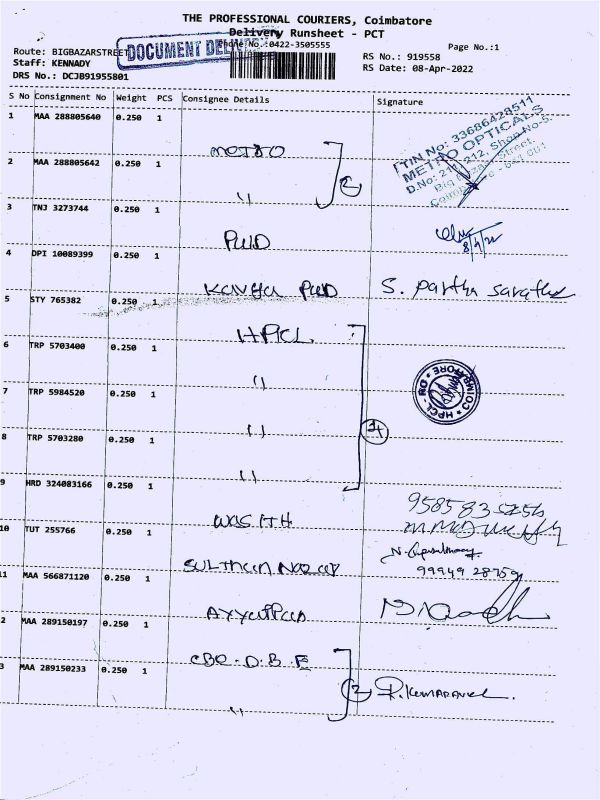 THE PROFESSIONAL COURIERS, Coimbatore
Delivery Runsheet - PCT
Phone No.:0422-3505555
Page No.:1
DOCUMENT
Route: BIGBAZARSTREET
RS No.: 919558
Staff: KENNADY
RS Date: 08-Apr-2022
DRS No.: DCJB91955801
S No Consignment No Weight PCS Consignee Details Signature
1 MAA 288805640 0.250 1 METRO
TIN No: 33686428511
METRO OPTICALS
D.No: 211,212, Shop No-5,
Big Bazaar Street
Coimbatore - 641 001
2 MAA 288805642 0.250 1 " 2
3 TNJ 3273744 0.250 1 PWD 8/4/22
4 DPI 10089399 0.250 1 PWD S. Partha Sarathy
5 STY 765382 0.250 1 HPCL
6 TRP 5703400 0.250 1 "
HPCL - RO COIMBATORE
7 TRP 5984520 0.250 1 " 4
8 TRP 5703280 0.250 1 "
9 HRD 324083166 0.250 1 WASITH 95858
10 TUT 255766 0.250 1 SULTHAN
99949 28759
11 MAA 566871120 0.250 1
2 MAA 289150197 0.250 1 CBE-D.B.F
3 MAA 289150233 0.250 1 " 2 R.KUMARAVEL.